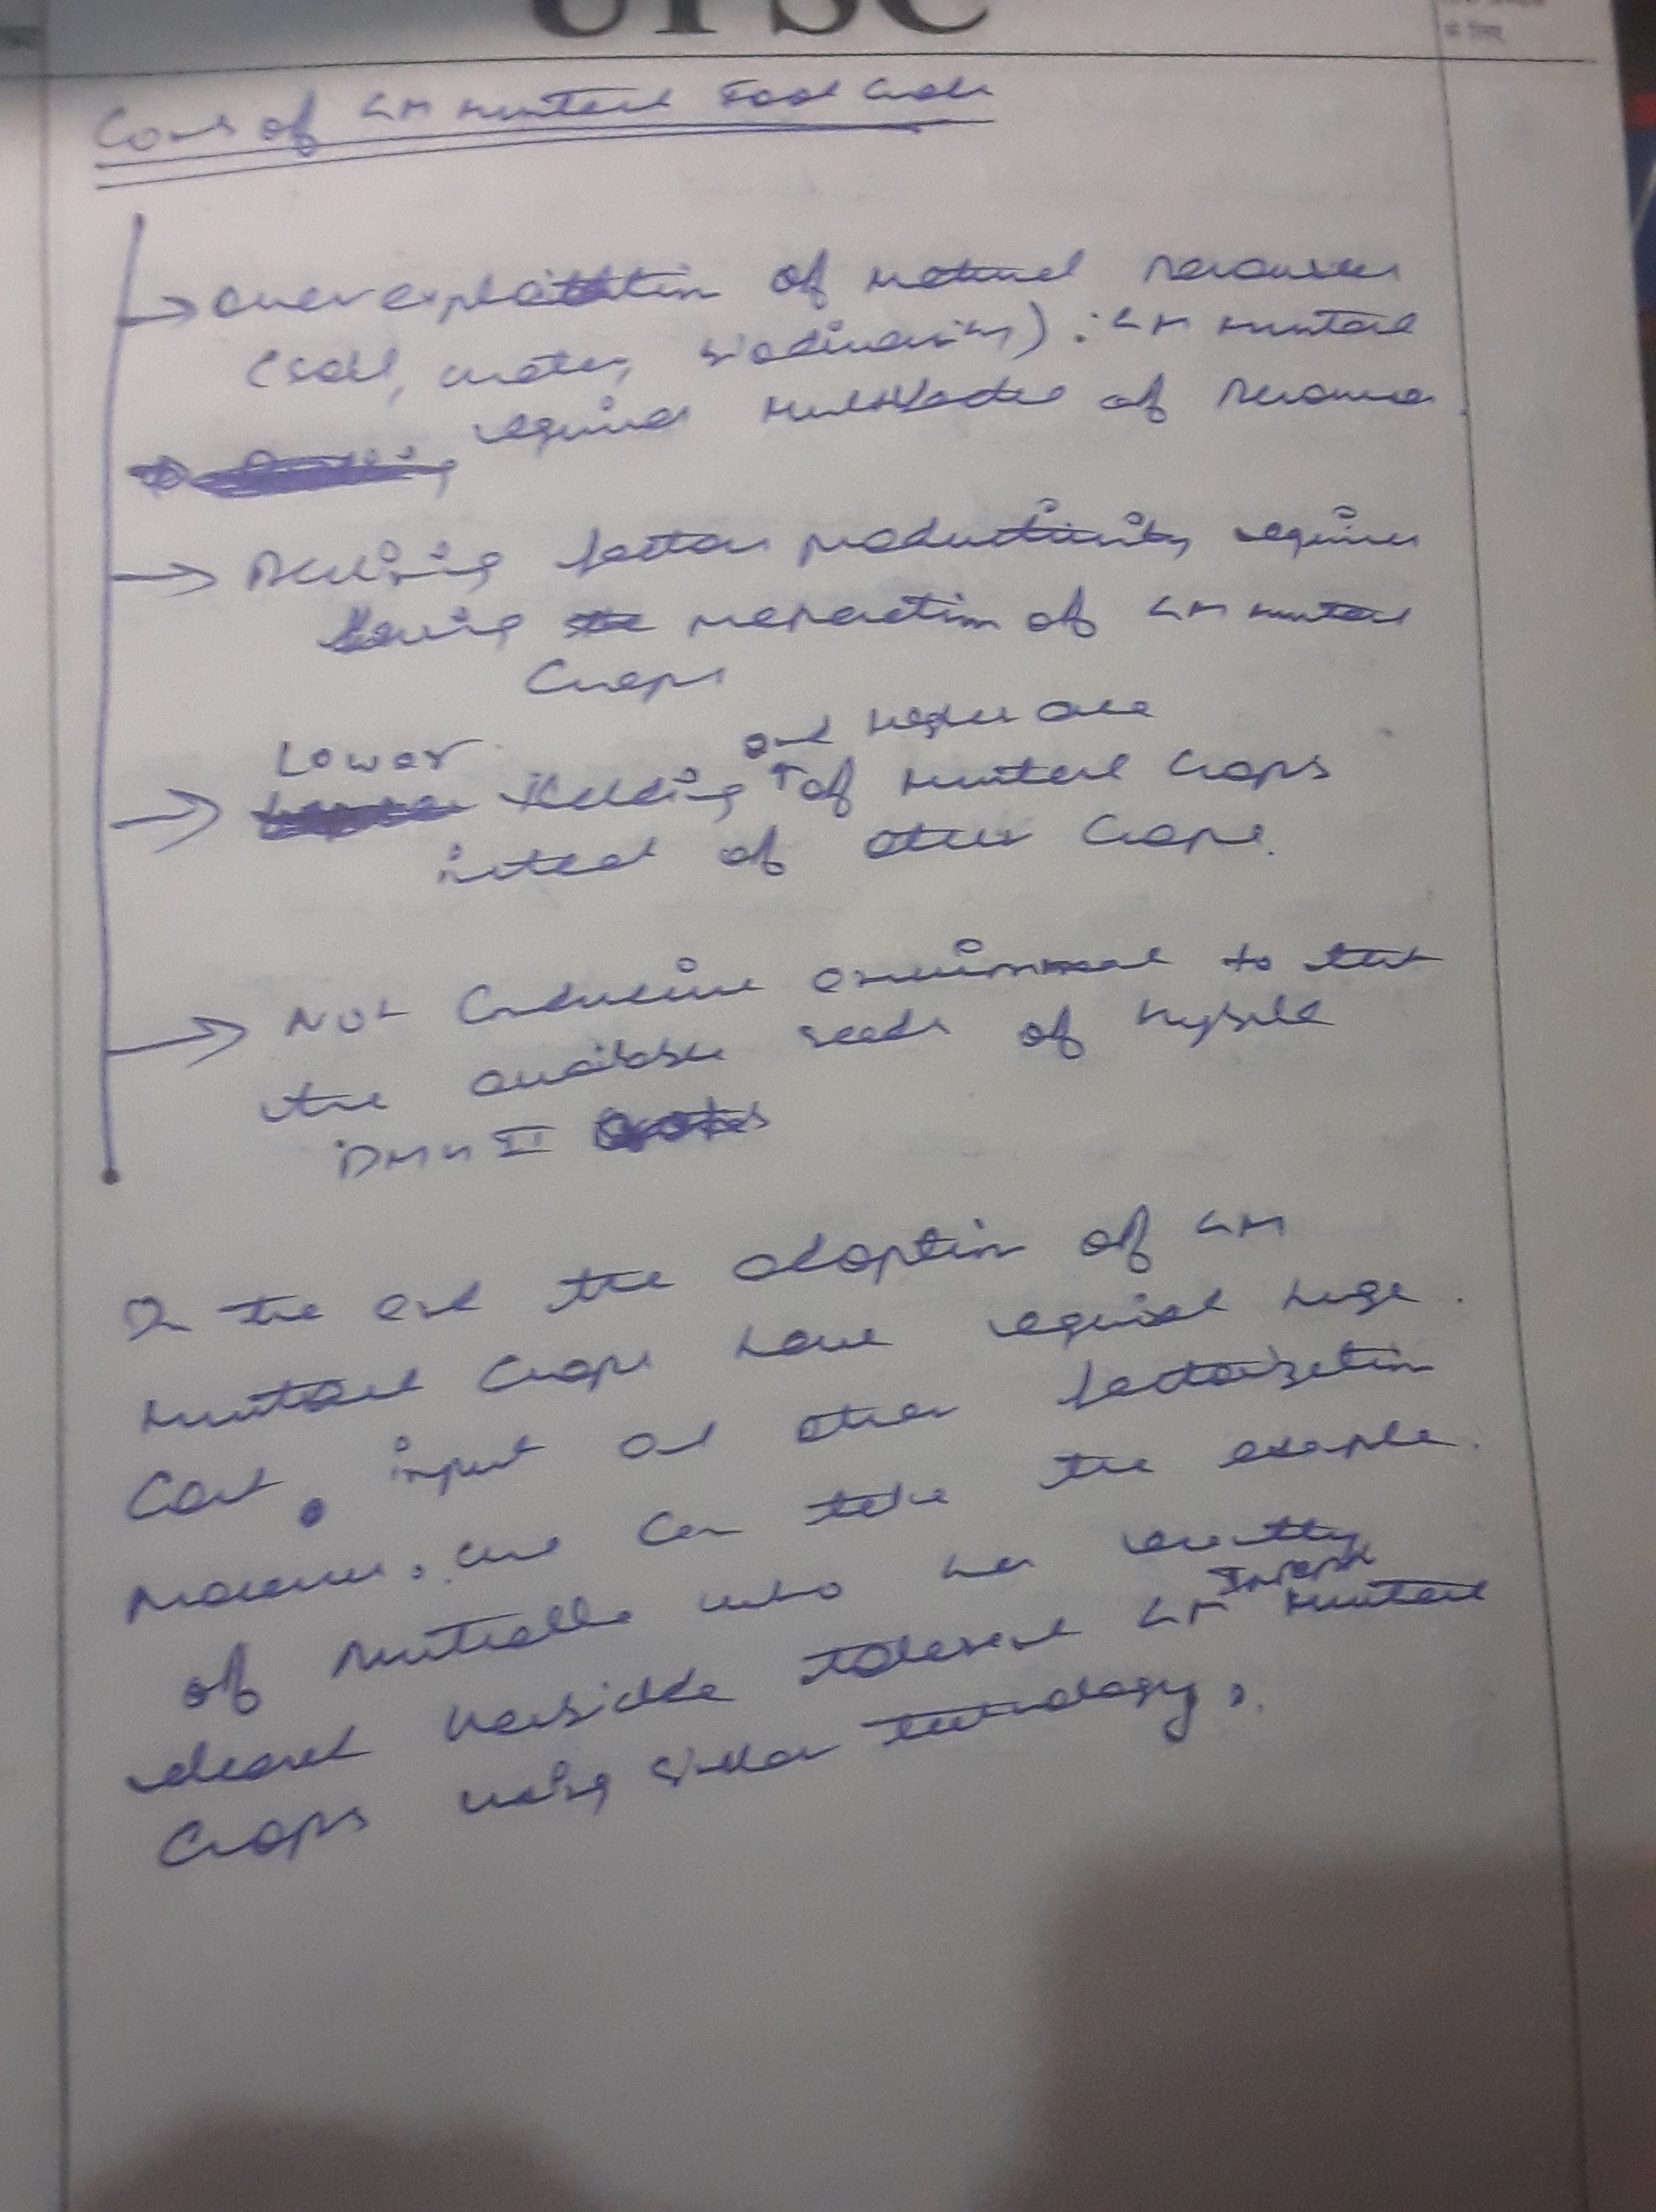 UPSC
के लिए
Cons of GM mustard Food Crops
overexploitation of natural resources
(soil, water, biodiversity) : GM mustard
requires of resource
Declining factor productivity requires
during the of GM mustard
Crops
Lower and higher area
Yielding of mustard Crops
instead of other Crops.
Not Conducive environment to that
the available seeds of hybrid
DMH II
In the end the adoption of GM
mustard Crops have required huge
Cost, input and other
we can take the example
of Australia who has recently
released herbicide tolerant GM mustard
Crops using similar technology.